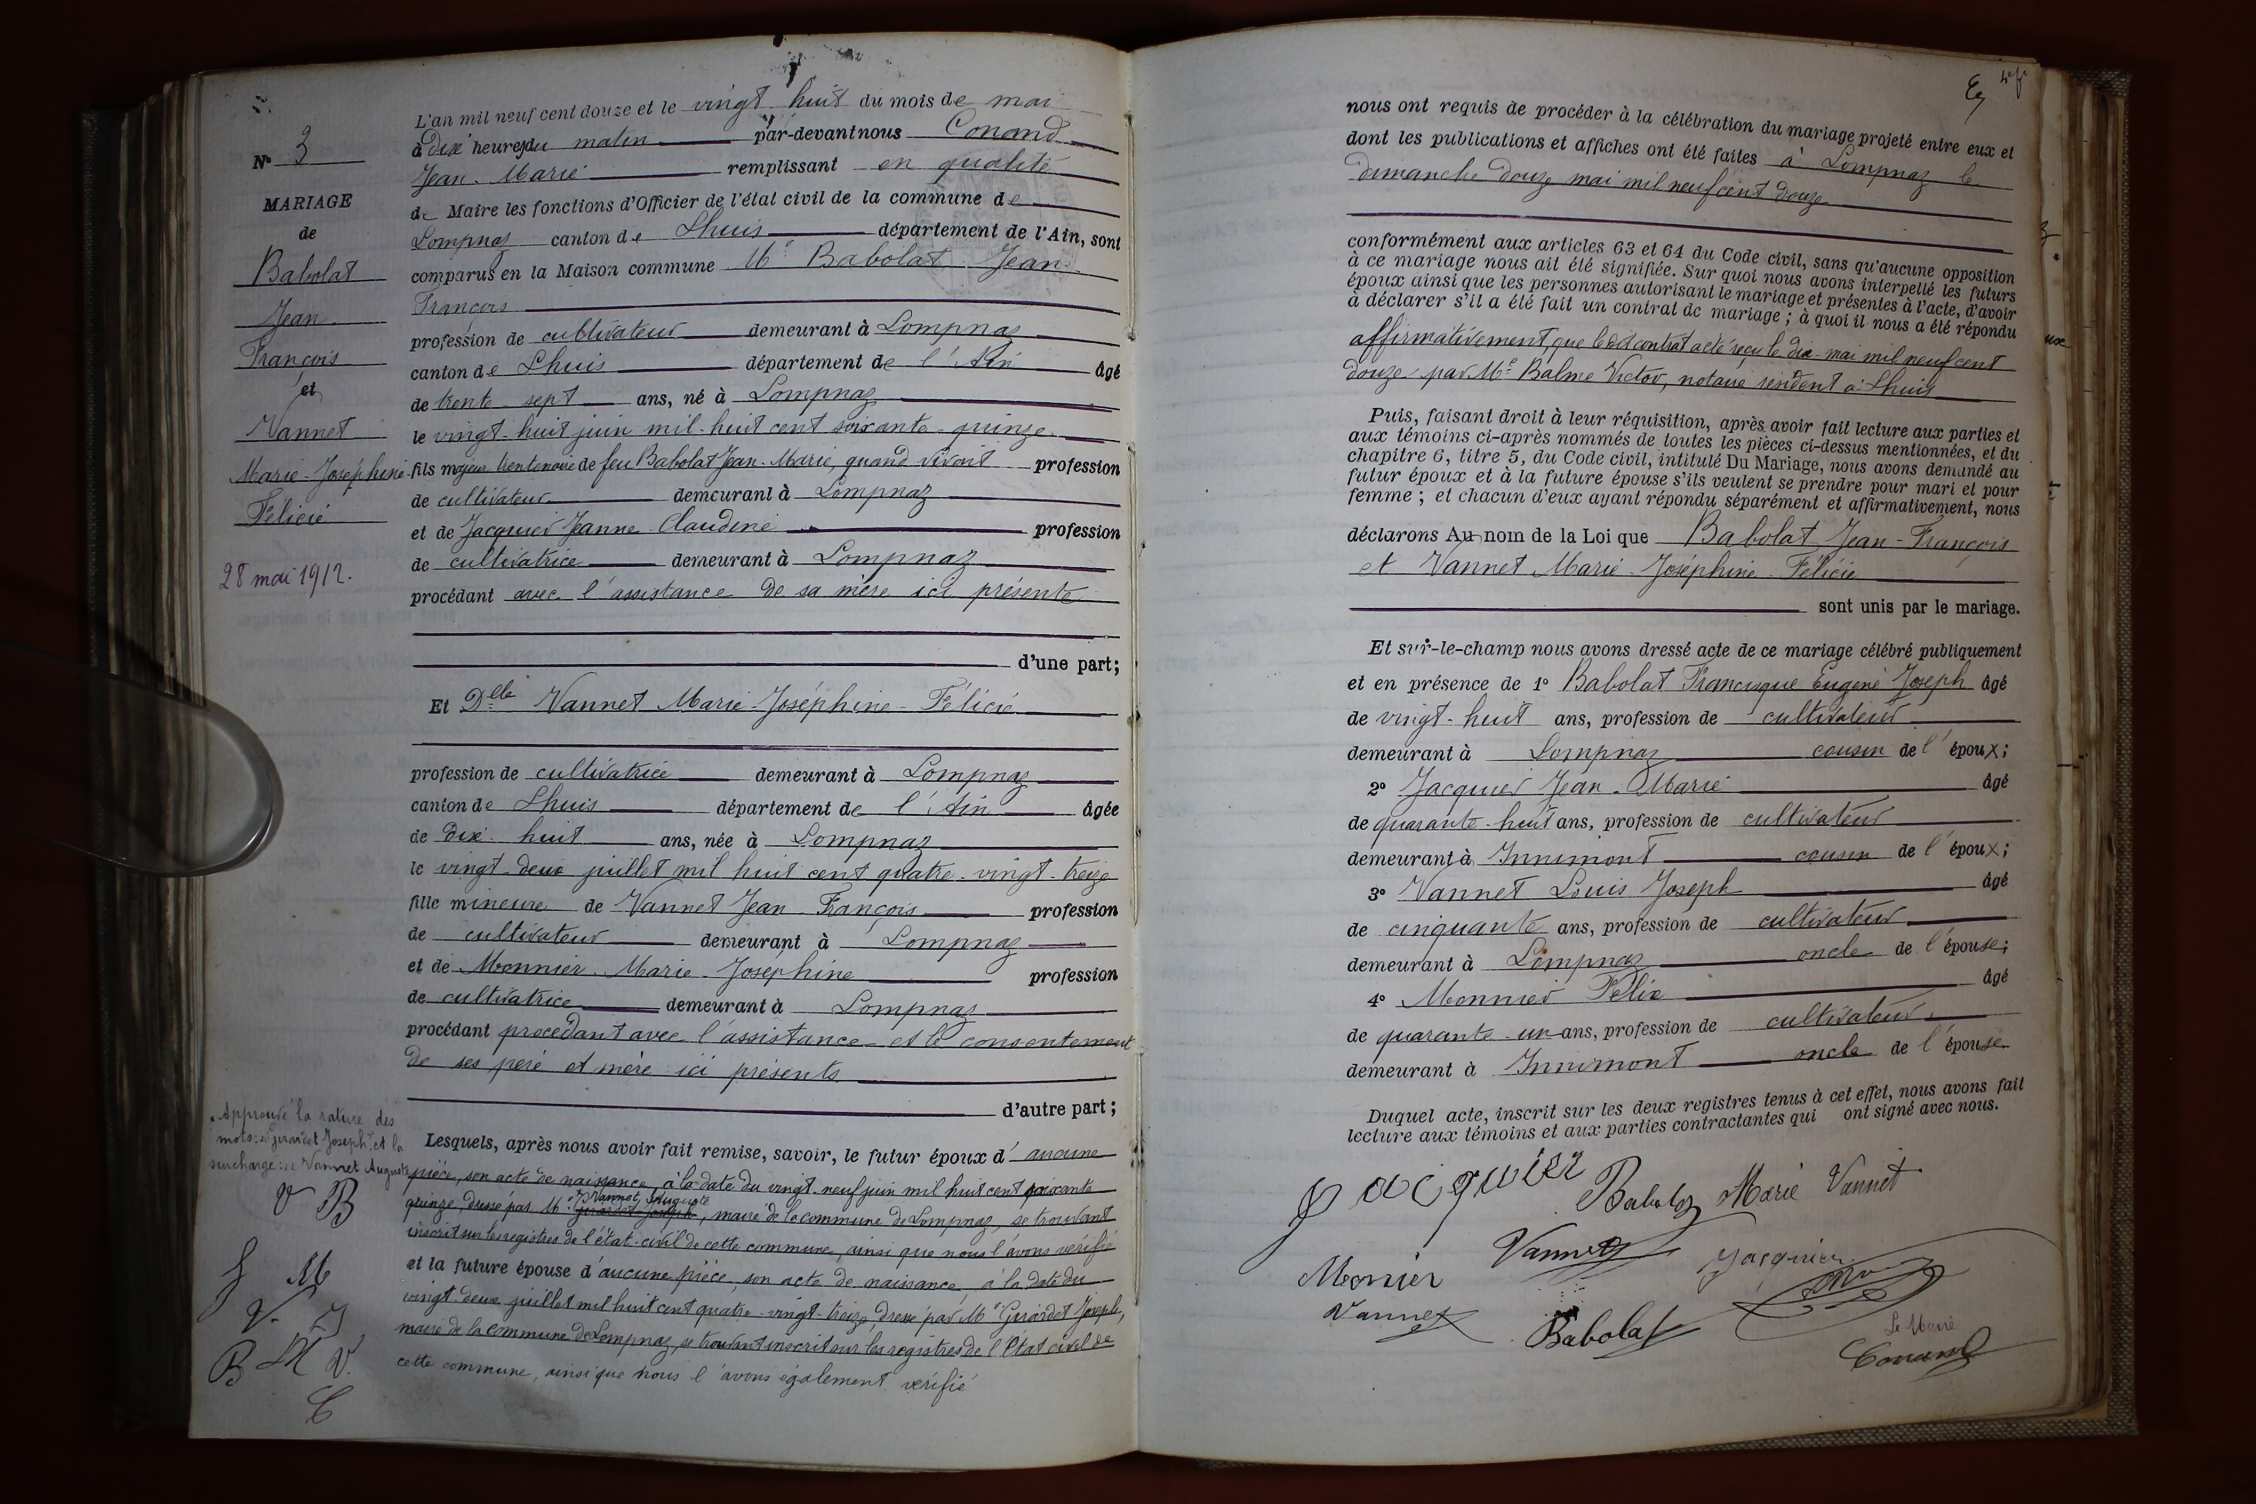 N° 3
MARIAGE
de
Babolat
Jean
François
et
Vannet
Marie-Joséphine
Félicie
28 mai 1912.
L'an mil neuf cent douze et le vingt huit du mois de mai
à dix heures du matin par-devant nous Conand
Jean-Marie remplissant en qualité
de Maire les fonctions d'Officier de l'état civil de la commune de
Lompnaz canton de Lhuis département de l'Ain, sont
comparus en la Maison commune Mr Babolat Jean-
François
profession de cultivateur demeurant à Lompnaz
canton de Lhuis département de l'Ain âgé
de trente sept ans, né à Lompnaz
le vingt-huit juin mil-huit cent soixante-quinze
fils majeur trentenaire de feu Babolat Jean-Marie, quand vivait profession
de cultivateur demeurant à Lompnaz
et de Jacquier Jeanne-Claudine profession
de cultivatrice demeurant à Lompnaz
procédant avec l'assistance de sa mère ici présente
d'une part;
Et Delle Vannet Marie-Joséphine-Félicie
profession de cultivatrice demeurant à Lompnaz
canton de Lhuis département de l'Ain âgée
de dix-huit ans, née à Lompnaz
le vingt-deux juillet mil huit cent quatre-vingt-treize
fille mineure de Vannet Jean-François profession
de cultivateur demeurant à Lompnaz
et de Monnier Marie-Joséphine profession
de cultivatrice demeurant à Lompnaz
procédant procédant avec l'assistance et le consentement
de ses père et mère ici présents
d'autre part;
Lesquels, après nous avoir fait remise, savoir, le futur époux d'aucune
pièce, son acte de naissance, à la date du vingt-neuf juin mil huit cent soixante
Vannet Auguste
quinze, dressé par Mr Girardet Joseph, maire de la commune de Lompnaz, se trouvant
inscrit sur les registres de l'état-civil de cette commune, ainsi que nous l'avons vérifié
et la future épouse d'aucune pièce, son acte de naissance, à la date du
vingt-deux juillet mil huit cent quatre-vingt-treize, dressé par Mr Girardet Joseph,
maire de la commune de Lompnaz, se trouvant inscrit sur les registres de l'état civil de
cette commune, ainsi que nous l'avons également vérifié
Approuvé la rature des
mots: "Girardet Joseph" et la
surcharge: "Vannet Auguste
V B
J M
V. J
B M V.
C
nous ont requis de procéder à la célébration du mariage projeté entre eux et
dont les publications et affiches ont été faites à Lompnaz le
dimanche douze mai mil neuf cent douze
conformément aux articles 63 et 64 du Code civil, sans qu'aucune opposition
à ce mariage nous ait été signifiée. Sur quoi nous avons interpellé les futurs
époux ainsi que les personnes autorisant le mariage et présentes à l'acte, d'avoir
à déclarer s'il a été fait un contrat de mariage; à quoi il nous a été répondu
affirmativement, que ledit contrat acté reçu le dix-mai mil neuf cent
douze par Me Balme Victor, notaire résident à Lhuis
Puis, faisant droit à leur réquisition, après avoir fait lecture aux parties et
aux témoins ci-après nommés de toutes les pièces ci-dessus mentionnées, et du
chapitre 6, titre 5, du Code civil, intitulé Du Mariage, nous avons demandé au
futur époux et à la future épouse s'ils veulent se prendre pour mari et pour
femme; et chacun d'eux ayant répondu séparément et affirmativement, nous
déclarons Au nom de la Loi que Babolat Jean-François
et Vannet Marie-Joséphine-Félicie
sont unis par le mariage.
Et sur-le-champ nous avons dressé acte de ce mariage célébré publiquement
et en présence de 1° Babolat Francisque Eugène Joseph âgé
de vingt-huit ans, profession de cultivateur
demeurant à Lompnaz cousin de l'époux;
2° Jacquier Jean-Marie âgé
de quarante-huit ans, profession de cultivateur
demeurant à Innimont cousin de l'époux;
3° Vannet Louis Joseph âgé
de cinquante ans, profession de cultivateur
demeurant à Lompnaz oncle de l'épouse;
4° Monnier Félix âgé
de quarante-un ans, profession de cultivateur
demeurant à Innimont oncle de l'épouse
Duquel acte, inscrit sur les deux registres tenus à cet effet, nous avons fait
lecture aux témoins et aux parties contractantes qui ont signé avec nous.
Jacquier Babolat Marie Vannet
Monier Vannet Jacquier
Vannet Babolat
Le Maire
Conand